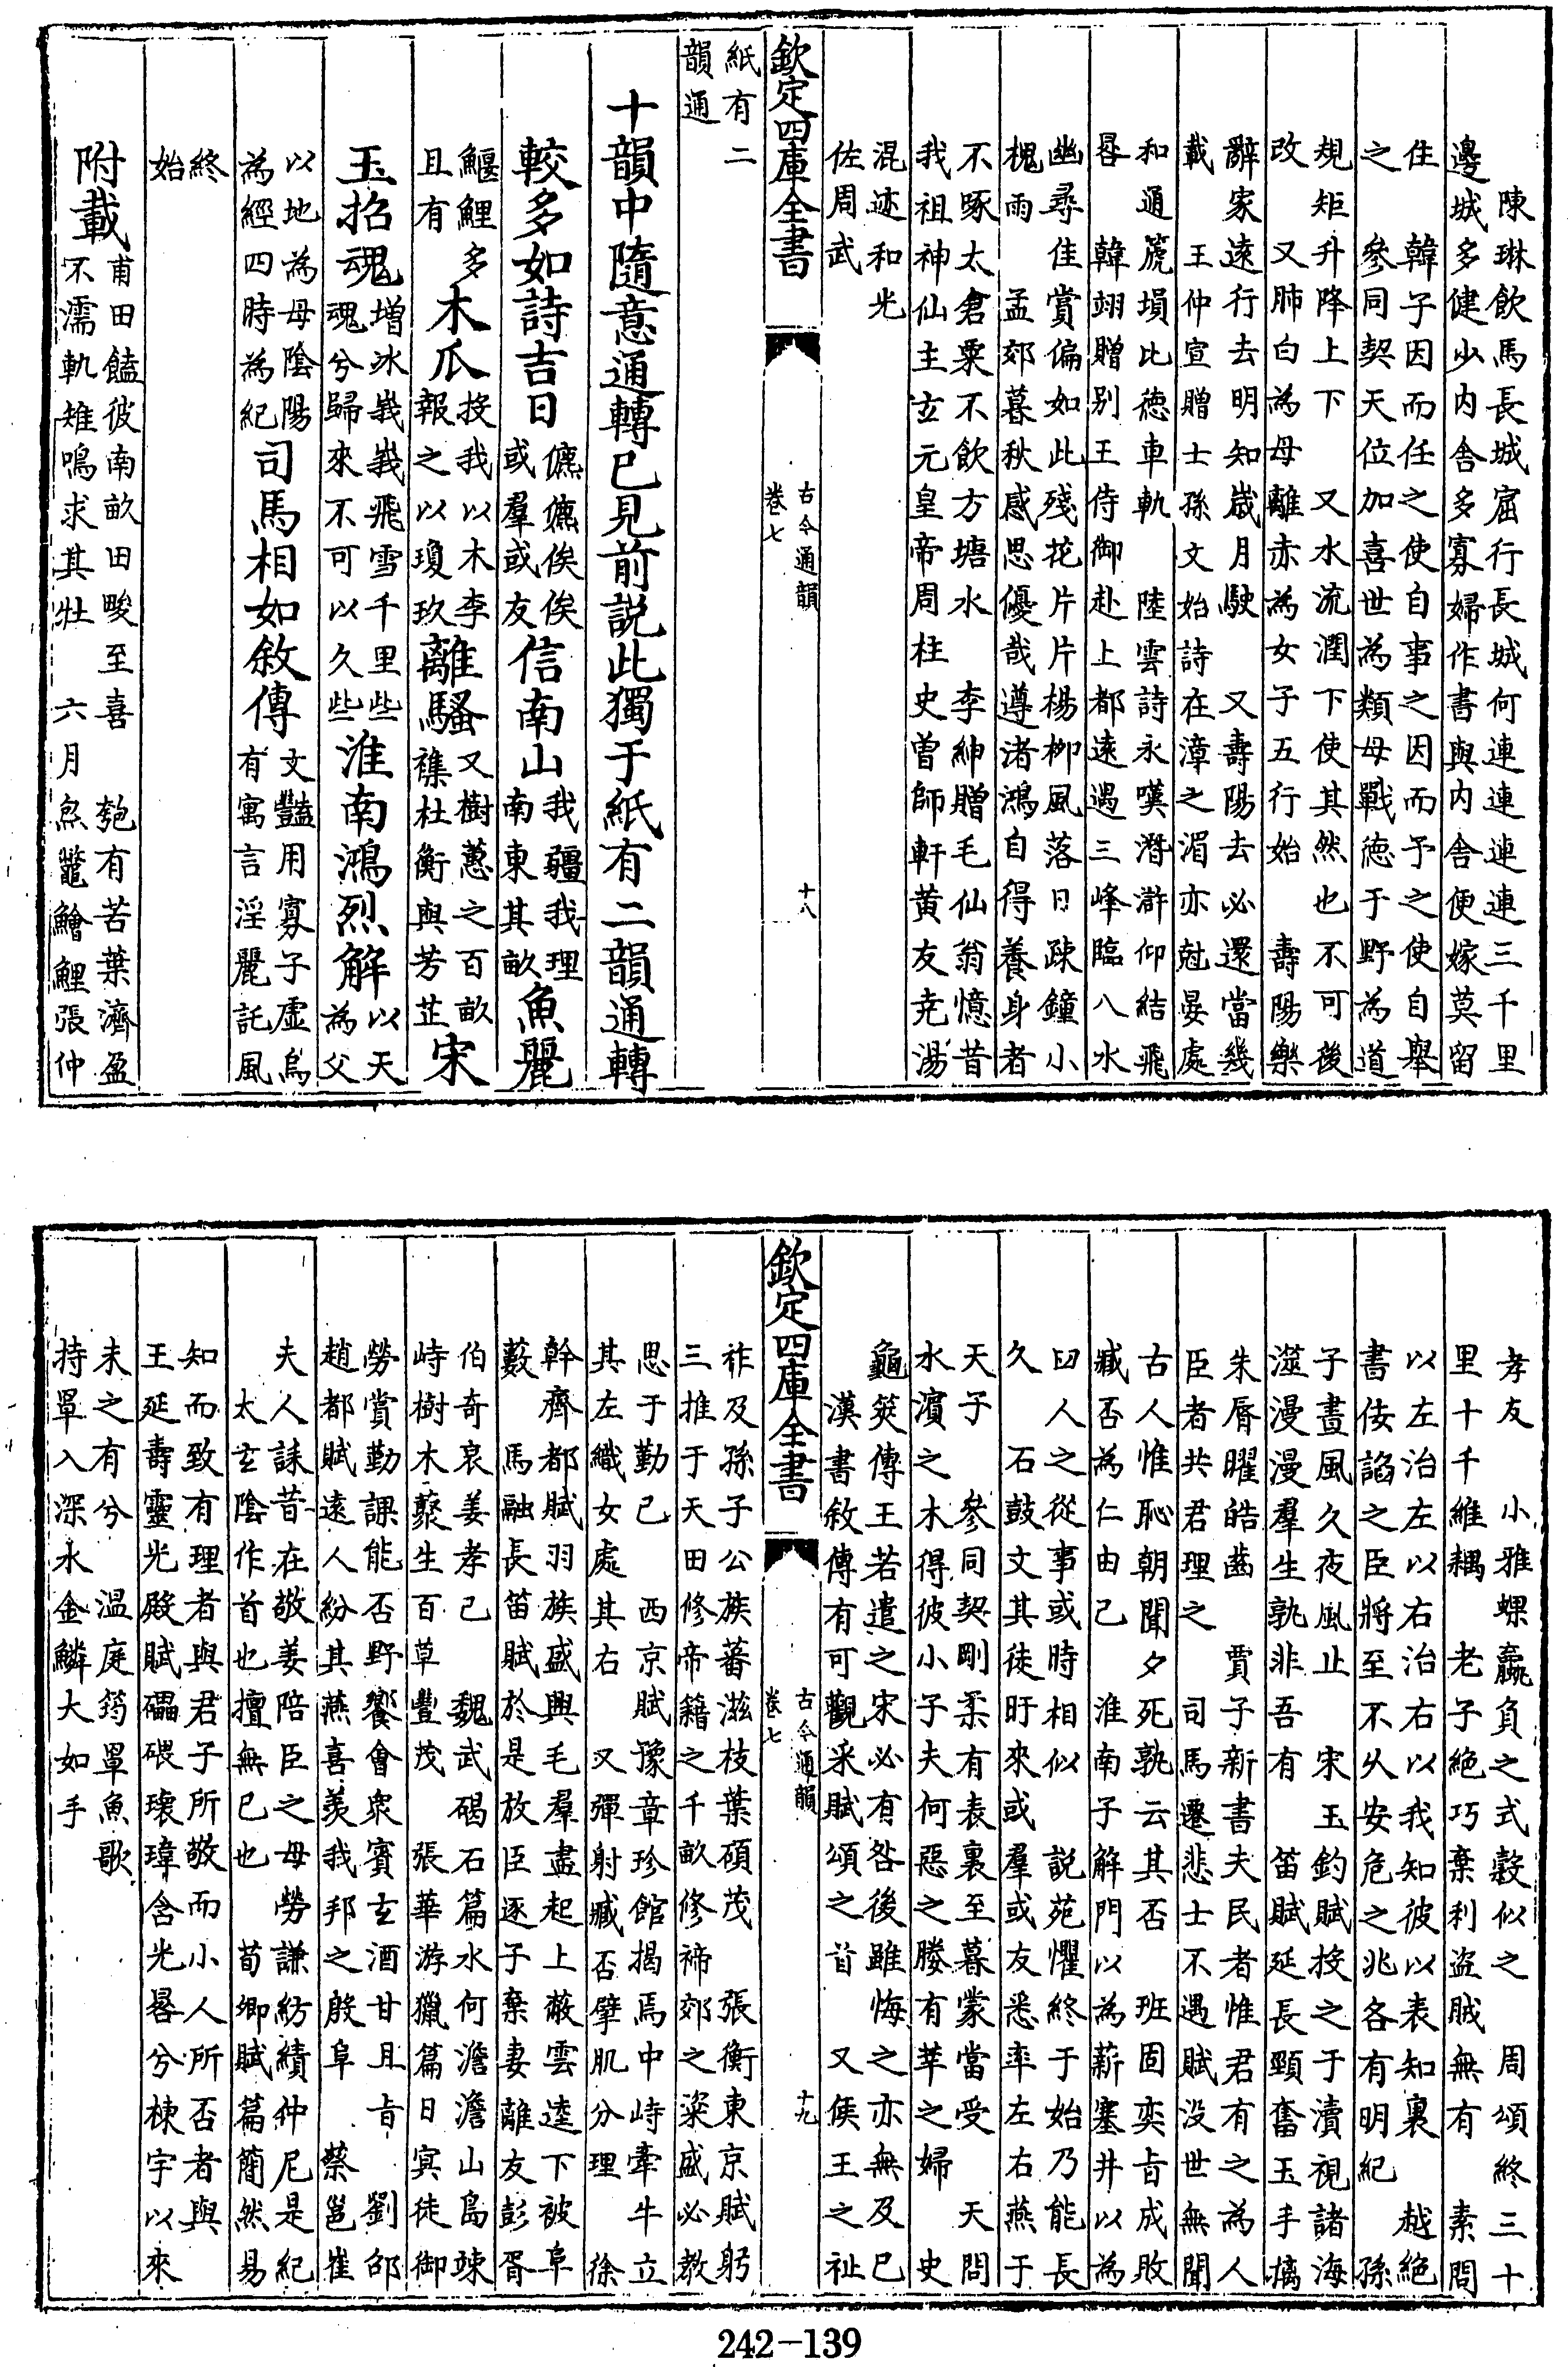 陳琳飲馬長城窟行長城何連連連連三千里
邊城多健少内舍多寡婦作書與内舍便嫁莫留
住　韓子因而任之使自事之因而予之使自舉
之　參同契天位加喜世為類母戰德于野為道
規矩升降上下　又水流潤下使其然也不可後
改　又肺白為母離赤為女子五行始　壽陽樂
辭家遠行去明知歲月駛　又壽陽去必還當幾
載　王仲宣贈士孫文始詩在漳之湄亦尅晏處
和通篪塤比德車軌　陸雲詩永嘆潛滸仰結飛
晷　韓翃贈别王侍御赴上都遠遇三峰臨八水
幽尋佳賞偏如此殘花片片楊柳風落日疎鐘小
槐雨　孟郊暮秋感思優哉遵渚鴻自得養身者
不啄太倉粟不飲方塘水　李紳贈毛仙翁憶昔
我祖神仙主玄元皇帝周柱史曽師軒黄友尭湯
混迹和光
佐周武
欽定四庫全書
古今通韻
卷七
十八
紙有二
韻通
十韻中隨意通轉已見前説此獨于紙有二韻通轉
較多如詩吉日儦儦俟俟或羣或友信南山我疆我理南東其畝魚麗
鰋鯉多且有木瓜投我以木李報之以瓊玖離騷又樹蕙之百畝襍杜衡與芳芷宋
玉招魂增冰峩峩飛雪千里些魂兮歸來不可以久些淮南鴻烈解以天為父
以地為母陰陽為經四時為紀司馬相如敘傳文豔用寡子虚烏有寓言淫麗託風
終
始
附載甫田饁彼南畝田畯至喜　匏有苦葉濟盈
不濡軌雉鳴求其牡　六月炰鼈鱠鯉張仲
孝友　小雅螺蠃負之式穀似之　周頌終三十
里十千維耦　老子絶巧棄利盜賊無有　素問
以左治左以右治右以我知彼以表知裏　越絶
書佞諂之臣將至不久安危之兆各有明紀　孫
子晝風久夜風止　宋玉釣賦投之于瀆視諸海
澨漫漫羣生孰非吾有　笛賦延長頸奮玉手摛
朱脣曜皓齒　賈子新書夫民者惟君有之為人
臣者共君理之　司馬遷悲士不遇賦没世無聞
古人惟恥朝聞夕死孰云其否　班固奕旨成敗
臧否為仁由己　淮南子解門以為薪塞井以為
臼人之從事或時相似　説苑懼終于始乃能長
久　石鼓文其徒旴來或羣或友悉率左右燕于
天子　參同契剛柔有表裏至暮蒙當受　天問
水濱之木得彼小子夫何惡之媵有莘之婦　史
龜筴傳王若遣之宋必有咎後雖悔之亦無及已
漢書敘傳有可觀采賦頌之首　又侯王之祉
欽定四庫全書
古今通韻
卷七
十九
祚及孫子公族蕃滋枝葉碩茂　張衡東京賦躬
三推于天田修帝籍之千畝修禘郊之粢盛必敎
思于勤己　西京賦豫章珍館揭焉中峙牽牛立
其左織女處其右　又彈射臧否擘肌分理　徐
幹齊都賦羽族盛興毛羣盡起上蔽雲逵下被阜
藪　馬融長笛賦於是放臣逐子棄妻離友彭胥
伯奇哀姜孝己　魏武碣石篇水何澹澹山島竦
峙樹木藂生百草豐茂　張華游獵篇日㝠徒御
勞賞勤課能否野饗會衆賓玄酒甘且旨　劉卲
趙都賦遠人紛其燕喜羡我邦之殷阜　蔡邕崔
夫人誄昔在敬姜陪臣之母勞謙紡績仲尼是紀
太玄陰作首也擅無已也　荀卿賦篇簡然易
知而致有理者與君子所敬而小人所否者與
王延壽靈光殿賦礧碨瓌瑋含光晷兮棟宇以來
未之有兮　温庭筠罩魚歌
持罩入深水金鱗大如手
242-139